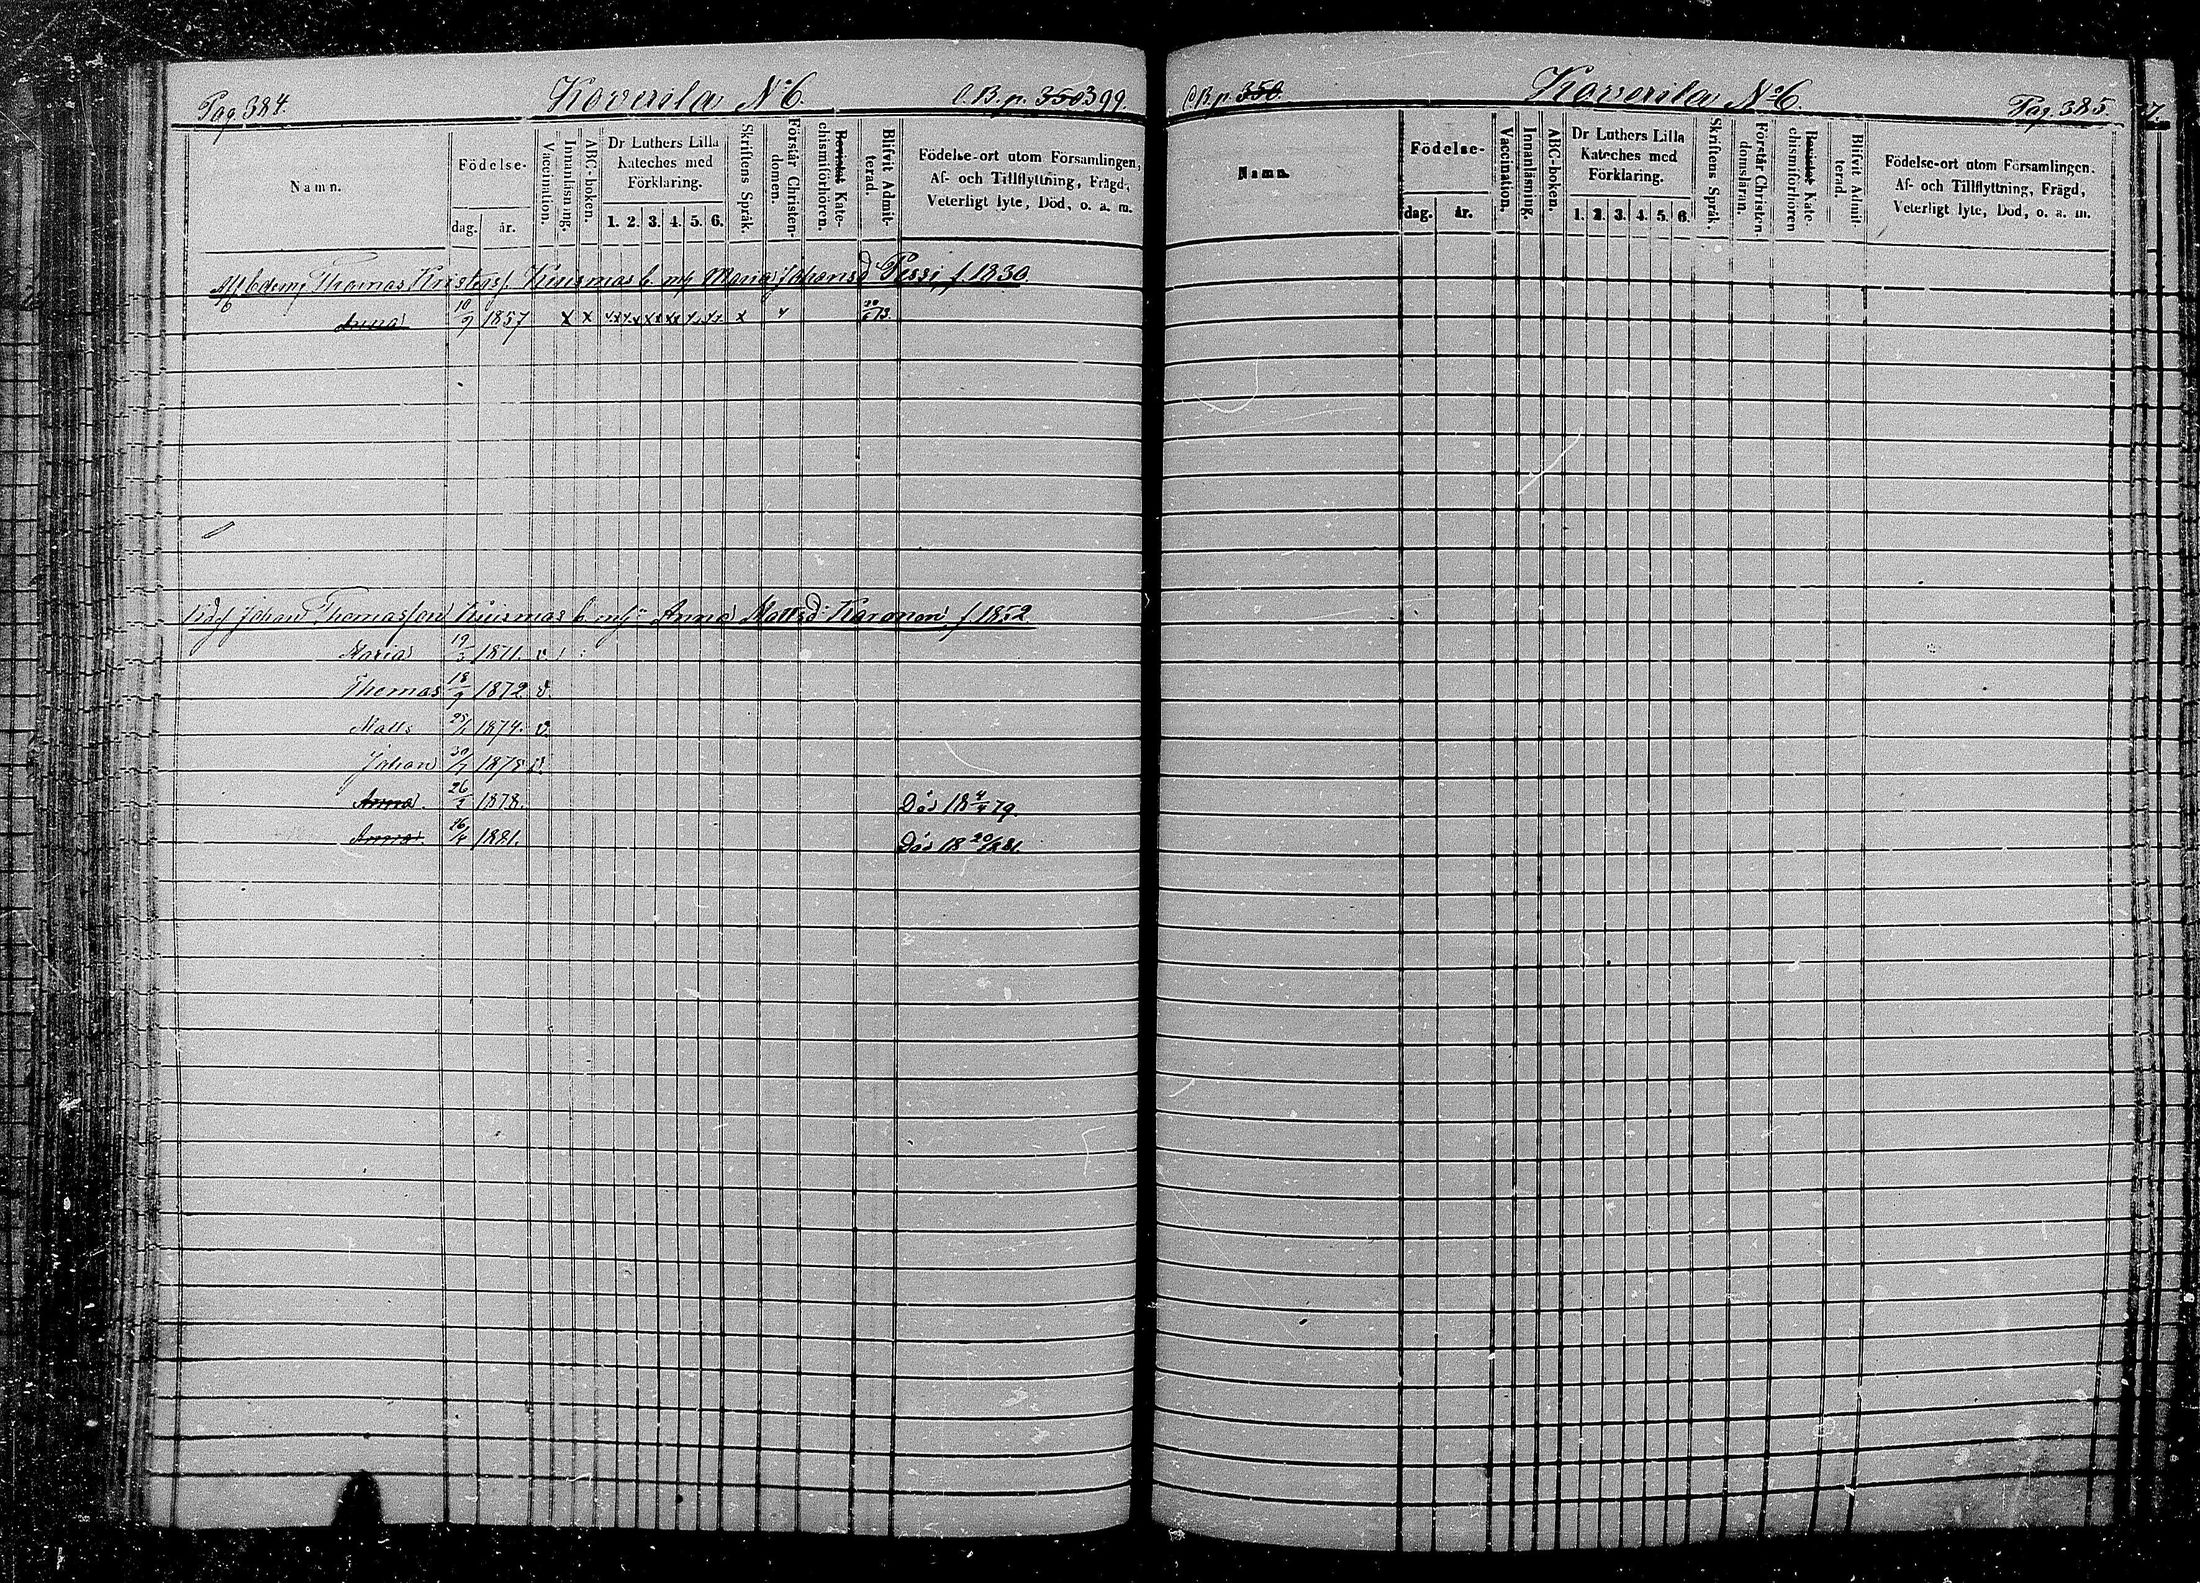 Pag. 384. Koverila N:o 6. C. B. p. 350 399.
Namn.
Födelse-
dag. år.
Vaccination.
Innanläsning.
ABC-boken.
Dr Luthers Lilla
Kateches med
Förklaring.
1. 2. 3. 4. 5. 6.
Skriftens Språk.
Förstår Christen-
domen.
Bevistat Kate-
chismiförhören.
Blifvit Admit-
terad.
Födelse-ort utom Församlingen,
Af- och Tillflyttning, Frägd,
Veterligt lyte, Död, o. a. m.
Thomas Kuismas b. m/ Maria Johansd Pessi, f. 1830.
Anna 10/9 1857 x x x x
Johan Thomasson Kuismas b. m/ Anna Mattsd. Karonen f. 1852
Maria 19/3 1871. v.
Thomas 18/9 1872 v.
Matts 1874. v.
Johan 1875 v.
Anna. 26/2 1878. Död 18 79.
Anna. 16/4 1881. Död 18 81.
C. B. p. 350. Koverila N:o 6. Pag. 385.
Namn.
Födelse-
dag. år.
Vaccination.
Innanläsning.
ABC-boken.
Dr Luthers Lilla
Kateches med
Förklaring.
1. 2. 3. 4. 5. 6.
Skriftens Språk.
Förstår Christen-
domsläran.
Bevistat Kate-
chismiförhören
Blifvit Admit-
terad.
Födelse-ort utom Församlingen.
Af- och Tillflyttning, Frägd,
Veterligt lyte, Död, o. a. m.
7.